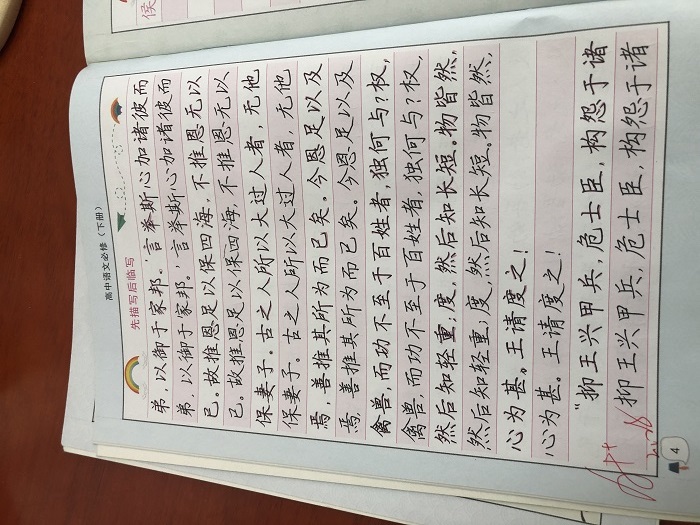 侯
高中语文必修（下册）
先描写后临写
弟，以御于家邦。'言举斯心加诸彼而
弟，以御于家邦。'言举斯心加诸彼而
已。故推恩足以保四海，不推恩无以
已。故推恩足以保四海，不推恩无以
保妻子。古之人所以大过人者，无他
保妻子。古之人所以大过人者，无他
焉，善推其所为而已矣。今恩足以及
焉，善推其所为而已矣。今恩足以及
禽兽，而功不至于百姓者，独何与？权，
禽兽，而功不至于百姓者，独何与？权，
然后知轻重；度，然后知长短。物皆然，
然后知轻重；度，然后知长短。物皆然，
心为甚。王请度之！
心为甚。王请度之！
“抑王兴甲兵，危士臣，构怨于诸
抑王兴甲兵，危士臣，构怨于诸
4